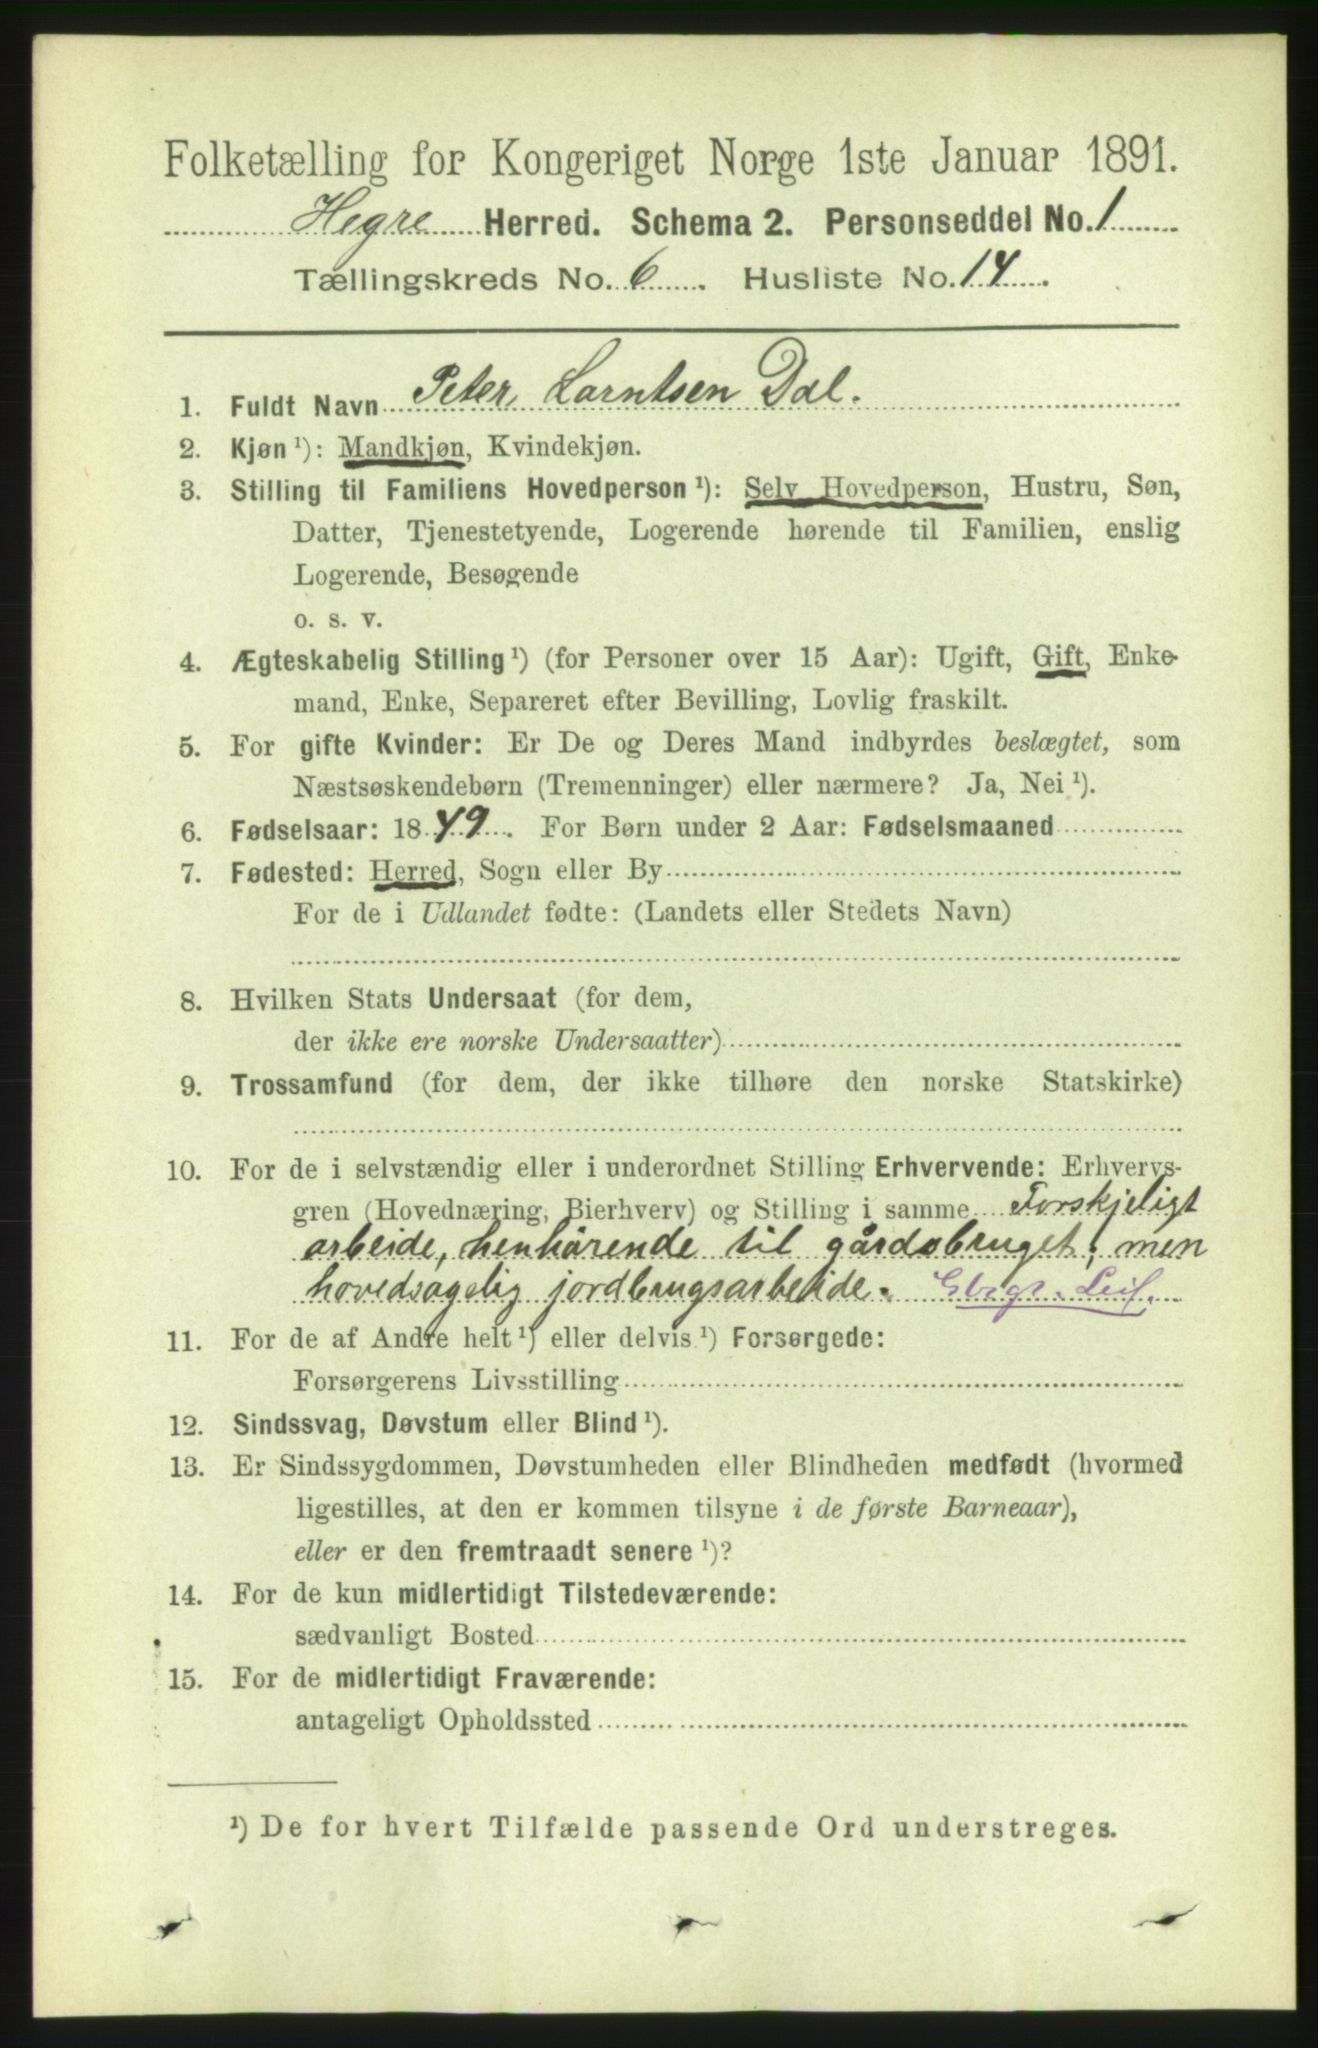 Folketælling for Kongeriget Norge 1ste Januar 1891.
Hegre Herred. Schema 2. Personseddel No. 1
Tællingskreds No. 6. Husliste No. 14.
1. Fuldt Navn Peter Larntsen Dal.
2. Kjøn ¹): Mandkjøn, Kvindekjøn.
3. Stilling til Familiens Hovedperson ¹): Selv Hovedperson, Hustru, Søn,
Datter, Tjenestetyende, Logerende hørende til Familien, enslig
Logerende, Besøgende
o. s. v.
4. Ægteskabelig Stilling ¹) (for Personer over 15 Aar): Ugift, Gift, Enke-
mand, Enke, Separeret efter Bevilling, Lovlig fraskilt.
5. For gifte Kvinder: Er De og Deres Mand indbyrdes beslægtet, som
Næstsøskendebørn (Tremenninger) eller nærmere? Ja, Nei ¹).
6. Fødselsaar: 1849. For Børn under 2 Aar: Fødselsmaaned
7. Fødested: Herred, Sogn eller By
For de i Udlandet fødte: (Landets eller Stedets Navn)
8. Hvilken Stats Undersaat (for dem,
der ikke ere norske Undersaatter)
9. Trossamfund (for dem, der ikke tilhøre den norske Statskirke)
10. For de i selvstændig eller i underordnet Stilling Erhvervende: Erhvervs-
gren (Hovednæring, Bierhverv) og Stilling i samme Forskjeligt
arbeide, henhørende til gårdsbruget; men
hovedsagelig jordbrugsarbeide.
11. For de af Andre helt ¹) eller delvis ¹) Forsørgede:
Forsørgerens Livsstilling
12. Sindssvag, Døvstum eller Blind ¹).
13. Er Sindssygdommen, Døvstumheden eller Blindheden medfødt (hvormed
ligestilles, at den er kommen tilsyne i de første Barneaar),
eller er den fremtraadt senere ¹)?
14. For de kun midlertidigt Tilstedeværende:
sædvanligt Bosted
15. For de midlertidigt Fraværende:
antageligt Opholdssted
¹) De for hvert Tilfælde passende Ord understreges.